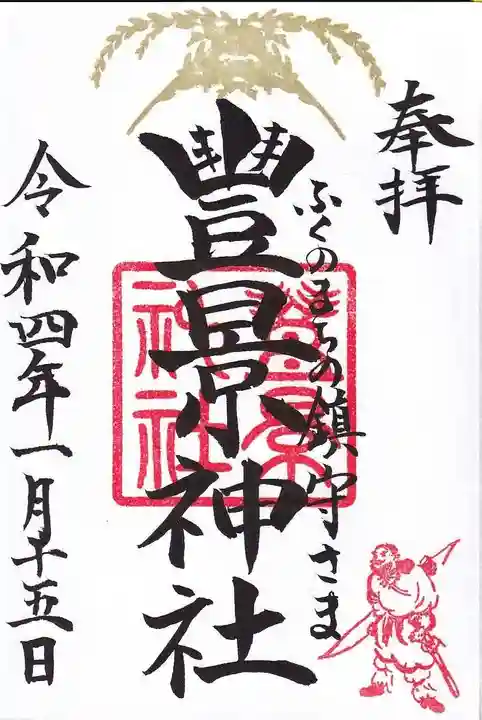 奉拝
ふくのまちの鎮守さま
豐景神社
豐景神社
令和四年一月十五日